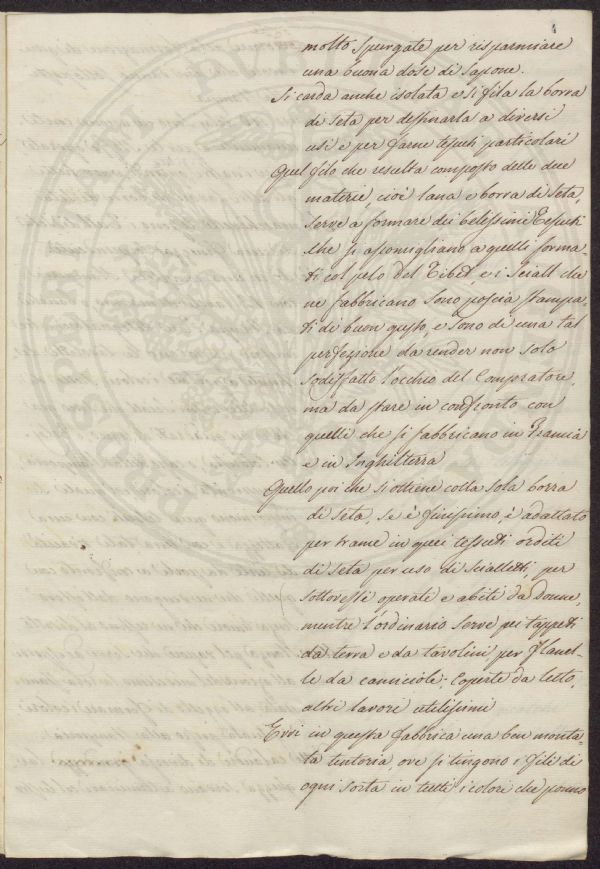 molto spurgate per risparmiare
una buona dose di sapone.
Si carda anche isolata e si fila la borra
di seta per destinarla a diversi
usi e per farne tessuti particolari
Quel filo che resulta composto delle due
materie, cioè lana e borra di seta,
serve a formare dei belissimi Tessuti
che si assomigliano a quelli forma-
ti col pelo del Tibet, e i Sciall che
ne fabbricano sono poscia stampa-
ti di buon gusto, e sono di una tal
perfezione da render non solo
sodisfatto l'occhio del Compratore,
ma da stare in confronto con
quelli che si fabbricano in Francia
e in Inghilterra
Quello poi che si ottiene colla sola borra
di seta, se è finissimo, è adattato
per trame in quei tessuti orditi
di seta per uso di scialletti, per
sottovesti operate e abiti da donne,
mentre l'ordinario serve pei tappeti
da terra e da tavolini per flanel-
le da camiciole; Coperte da letto,
altri lavori utilissimi
Evvi in questa fabbrica una ben monta-
ta tintoria ove si tingono i fili di
ogni sorta in tutti i colori che ponno